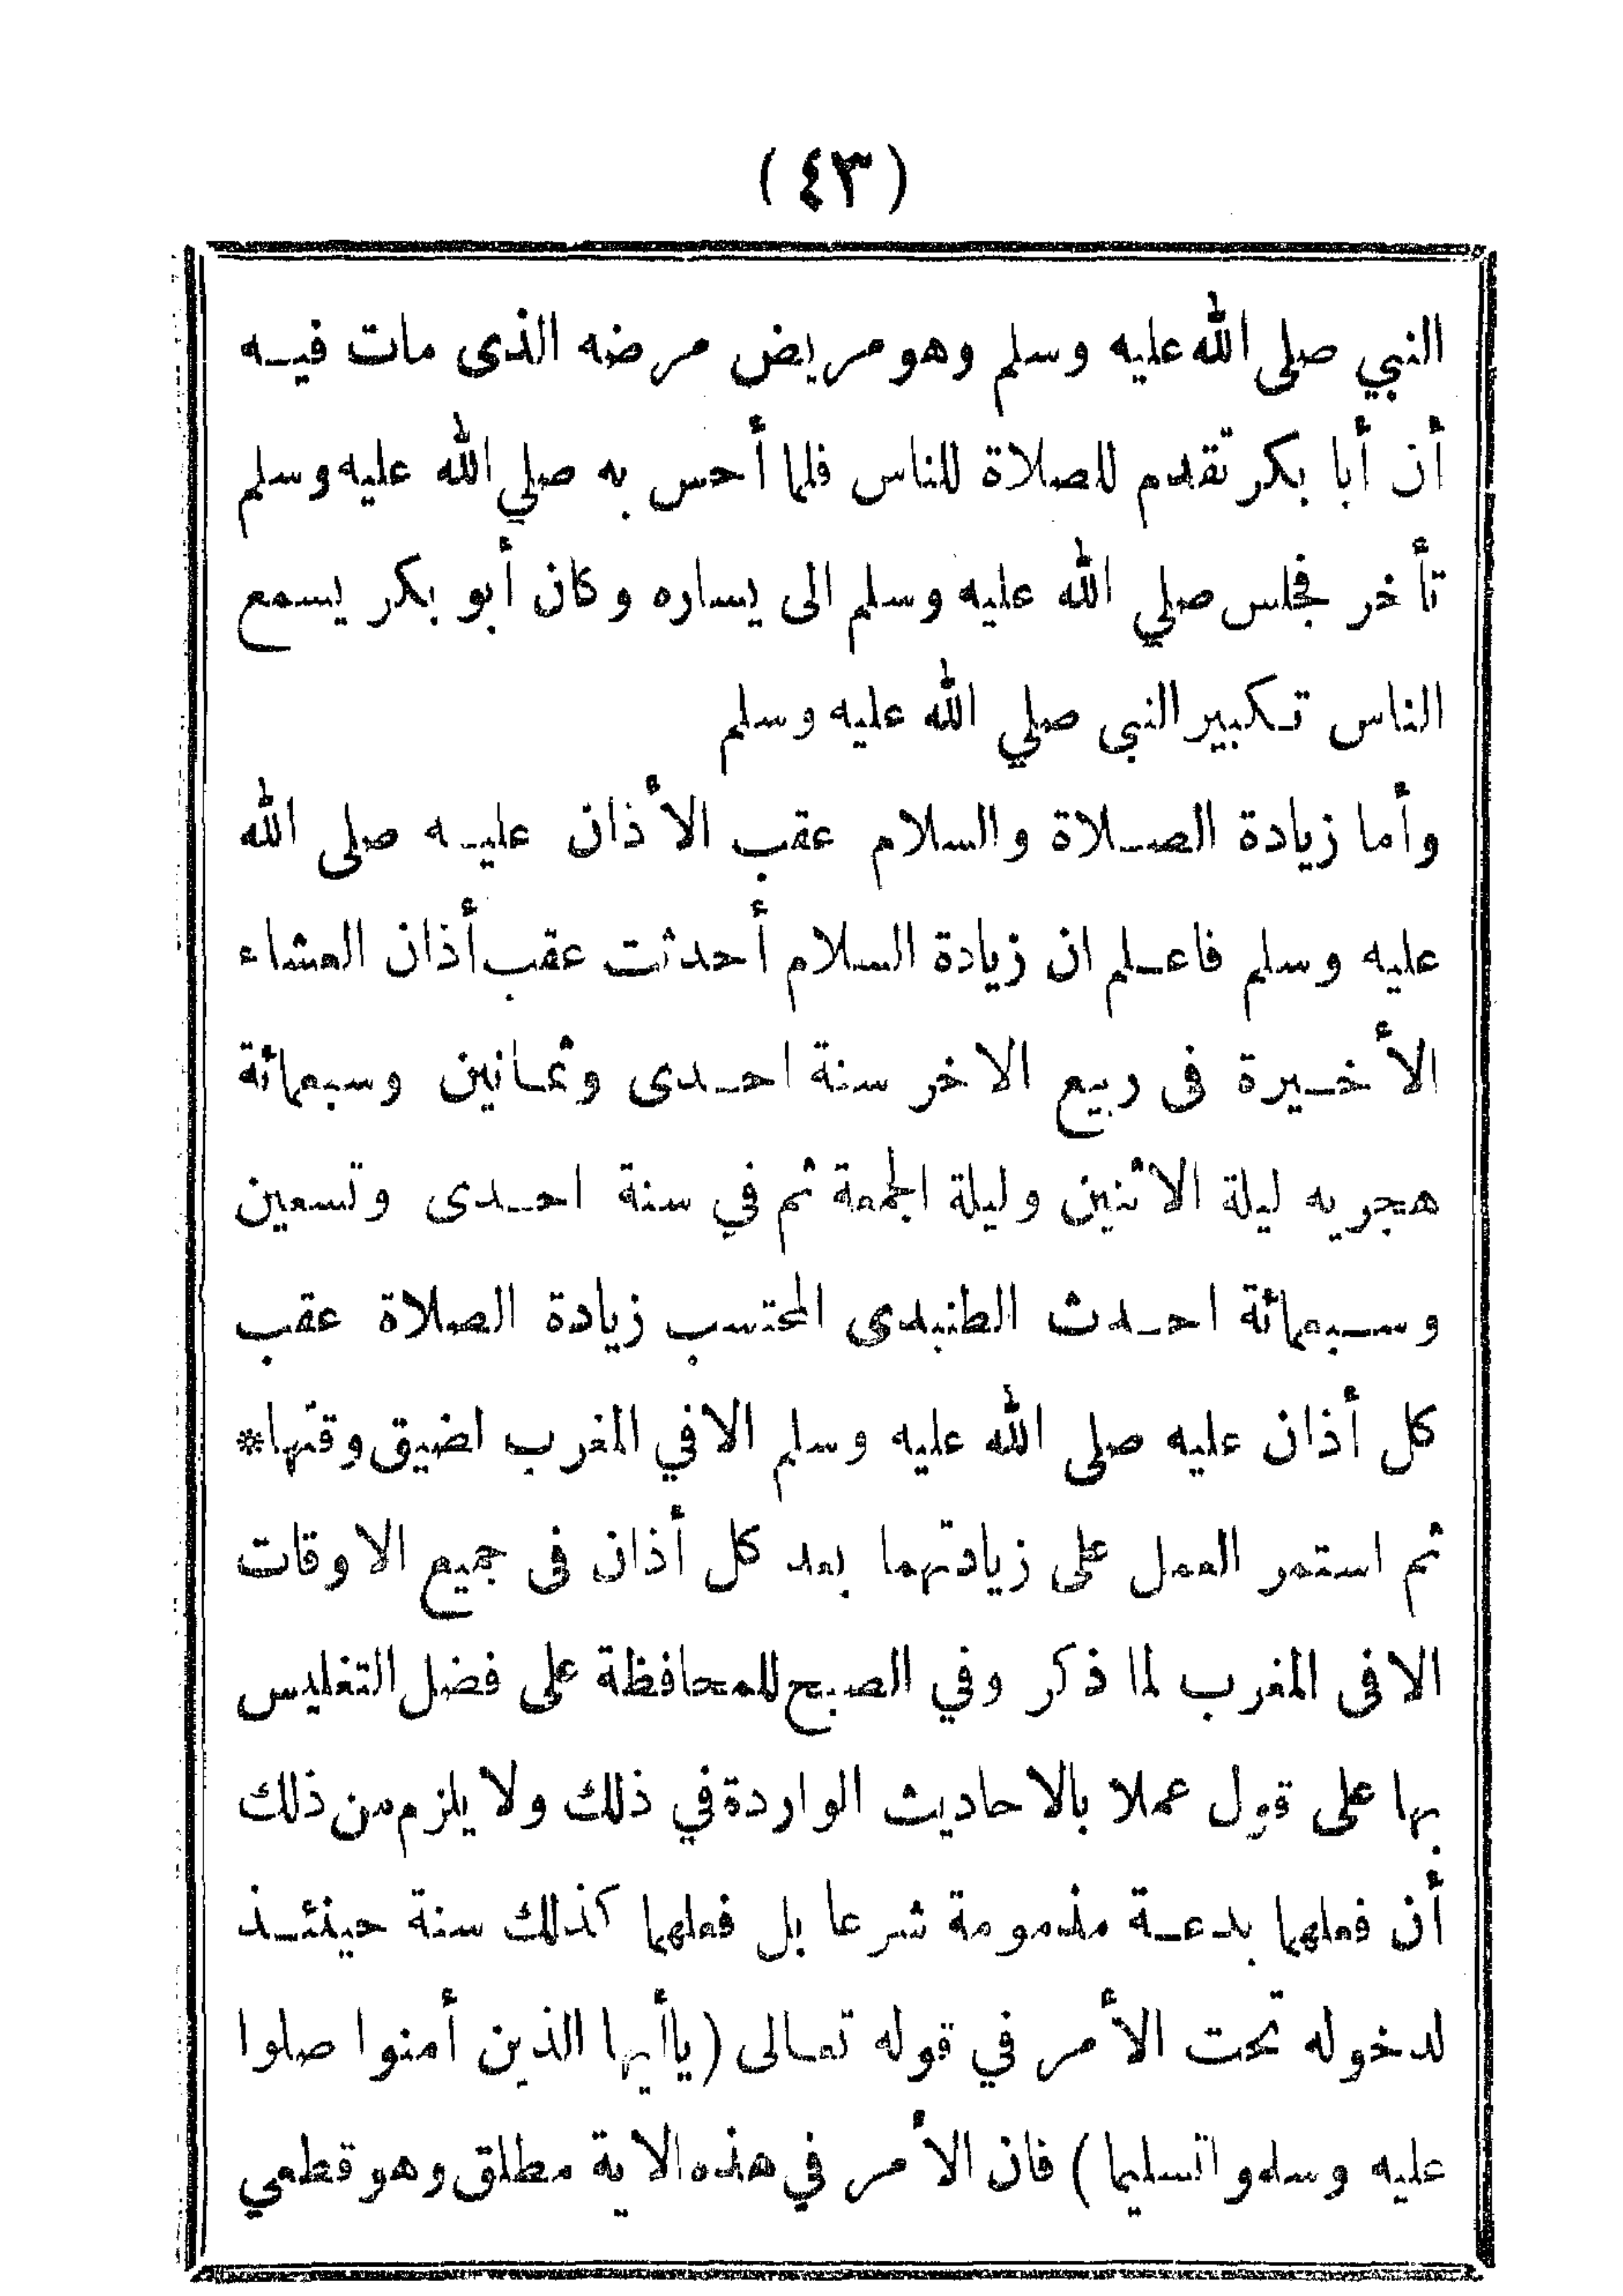 (٤٣)
النبي صلى الله عليه وسلم وهو مريض مرضه الذى مات فيه
أن أبا بكر تقدم للصلاة للناس فلما أحس به صلي الله عليه وسلم
تأخر فجلس صلي الله عليه وسلم الى يساره وكان أبو بكر يسمع
الناس تكبير النبى صلي الله عليه وسلم
وأما زيادة الصلاة والسلام عقب الأذان عليه صلى الله
عليه وسلم فاعلم ان زيادة السلام أحدثت عقب أذان العشاء
الأخيرة فى ربيع الاخر سنة احدى وثمانين وسبعمائة
هجريه ليلة الاثنين وليلة الجمعة ثم في سنة احدى وتسعين
وسبعمائة احدث الطنبدى المحتسب زيادة الصلاة عقب
كل أذان عليه صلى الله عليه وسلم الا في المغرب لضيق وقتها*
ثم استمر العمل على زيادتهما بعد كل أذان فى جميع الاوقات
الا فى المغرب لما ذكر وفي الصبح للمحافظة على فضل التغليس
بها على قول عملا بالاحاديث الواردة في ذلك ولا يلزم من ذلك
أن فعلهما بدعة مذمومة شرعا بل فعلهما كذلك سنة حينئذ
لدخوله تحت الأمر في قوله تعالى (ياأيها الذين أمنوا صلوا
عليه وسلموا تسليما) فان الأمر في هذه الاية مطلق وهو قطعي